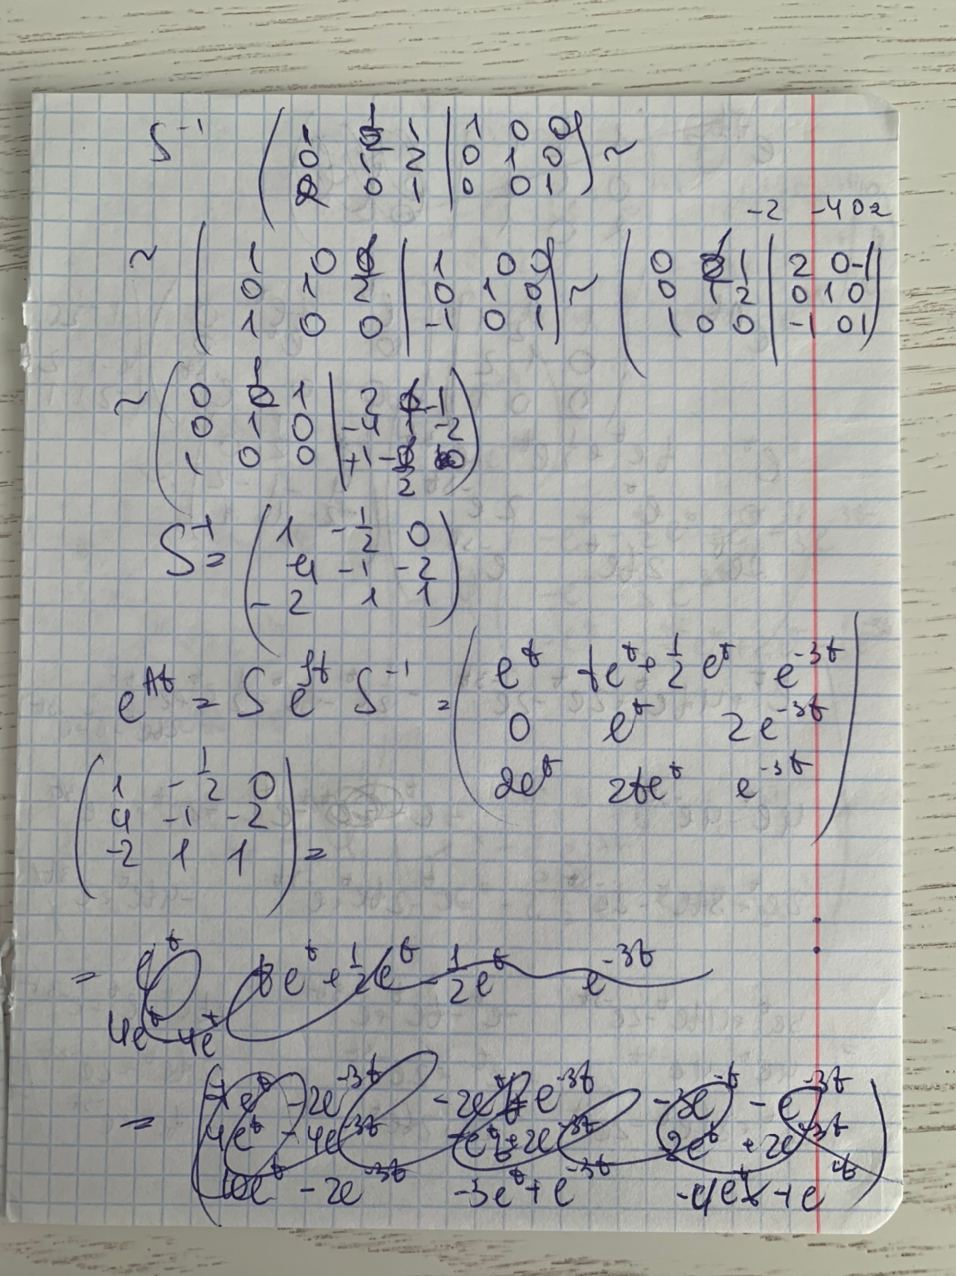 S⁻¹ ( 1 1 | 1 0 0
0 1 2 | 0 1 0
2 0 1 | 0 0 1 ) ~
-2 -4 0 2
~ ( 1 0 | 1 0 0 ~ ( 0 1 | 2 0 -1
0 1 2 | 0 1 0 0 1 2 | 0 1 0
1 0 0 | -1 0 1 ) 1 0 0 | -1 0 1 )
~ ( 0 1 | 2 -1
0 1 0 | -4 1 -2
1 0 0 | +1 - 0 )
2
S⁻¹ = ( 1 -1/2 0
4 -1 -2
-2 1 1 )
e^{At} = S e^{Jt} S⁻¹ = ( e^t te^t + 1/2 e^t e^{-3t}
0 e^t 2e^{-3t}
2e^t 2te^t e^{-3t} )
( 1 -1/2 0
4 -1 -2
-2 1 1 ) =
= e^t te^t + 1/2 e^t - 1/2 e^t e^{-3t}
4e^t 4e^t
= ( e^t - 2e^{-3t} -2e^t + e^{-3t} - e^{-3t}
4e^t - 4e^{-3t} + 2e^{-3t} 2e^t + 2e^{-3t}
e^t - 2e^{-3t} -3e^t + e^{-3t} )